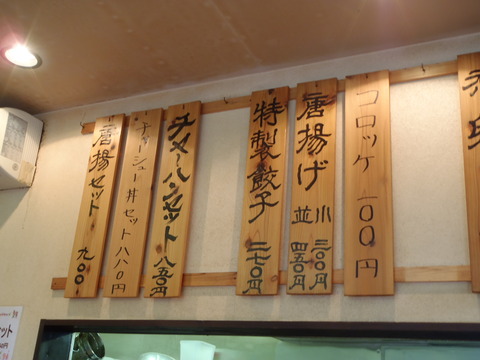 コロッケ 一〇〇円
唐揚げ 小 二〇〇円
並 四五〇円
特製餃子 二七〇円
チャーハンセット 八五〇円
チャーシュー丼セット 八八〇円
唐揚セット 九〇〇